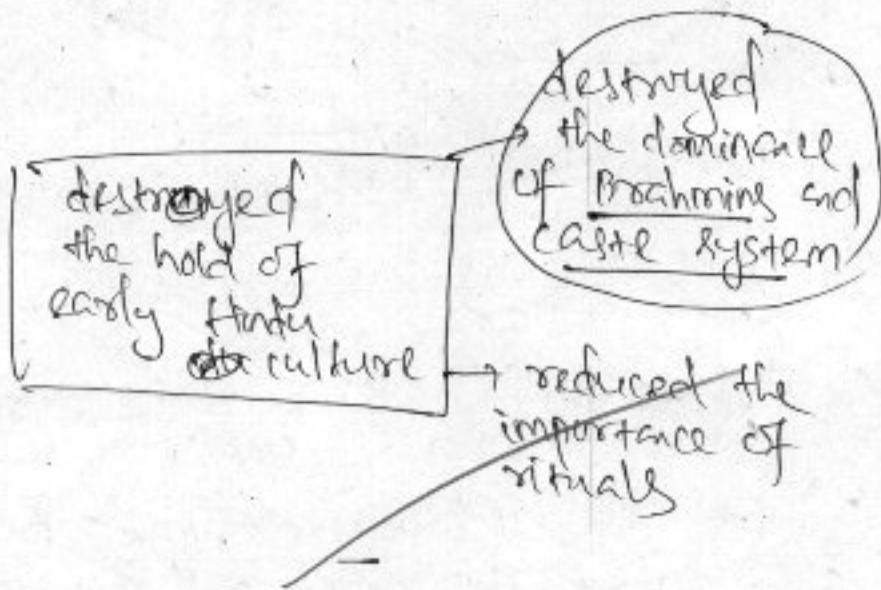 destroyed
the hold of
early Hindu
culture
destroyed
the dominance
of Brahmins and
caste system
reduced the
importance of
rituals